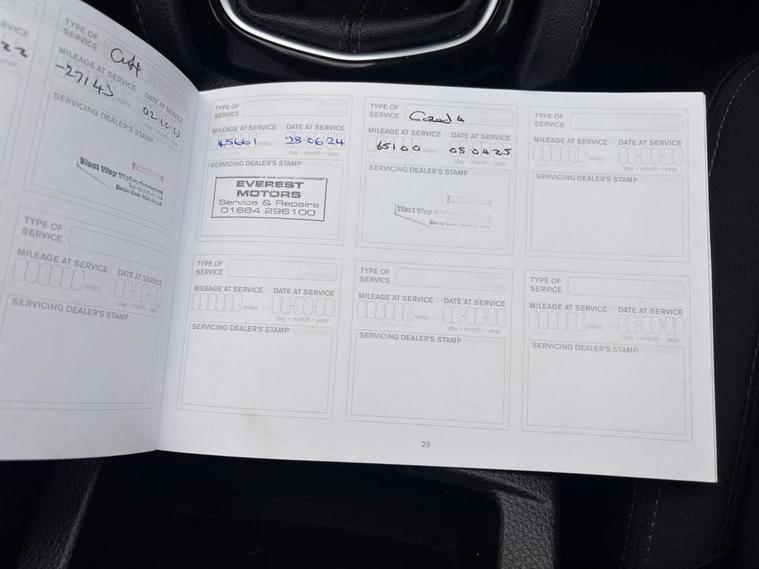 TYPE OF
SERVICE
MILEAGE AT SERVICE
27143 miles
DATE AT SERVICE
day - month - year
SERVICING DEALER'S STAMP
West Way
TYPE OF
SERVICE
MILEAGE AT SERVICE
miles
DATE AT SERVICE
day - month - year
SERVICING DEALER'S STAMP
TYPE OF
SERVICE
MILEAGE AT SERVICE DATE AT SERVICE
45661 miles 28 06 24
day - month - year
SERVICING DEALER'S STAMP
EVEREST
MOTORS
Service & Repairs
01684 296100
TYPE OF
SERVICE
MILEAGE AT SERVICE DATE AT SERVICE
65100 miles 08 04 25
day - month - year
SERVICING DEALER'S STAMP
West Way
TYPE OF
SERVICE
MILEAGE AT SERVICE DATE AT SERVICE
miles
day - month - year
SERVICING DEALER'S STAMP
TYPE OF
SERVICE
MILEAGE AT SERVICE DATE AT SERVICE
miles
day - month - year
SERVICING DEALER'S STAMP
TYPE OF
SERVICE
MILEAGE AT SERVICE DATE AT SERVICE
miles
day - month - year
SERVICING DEALER'S STAMP
TYPE OF
SERVICE
MILEAGE AT SERVICE DATE AT SERVICE
miles
day - month - year
SERVICING DEALER'S STAMP
23